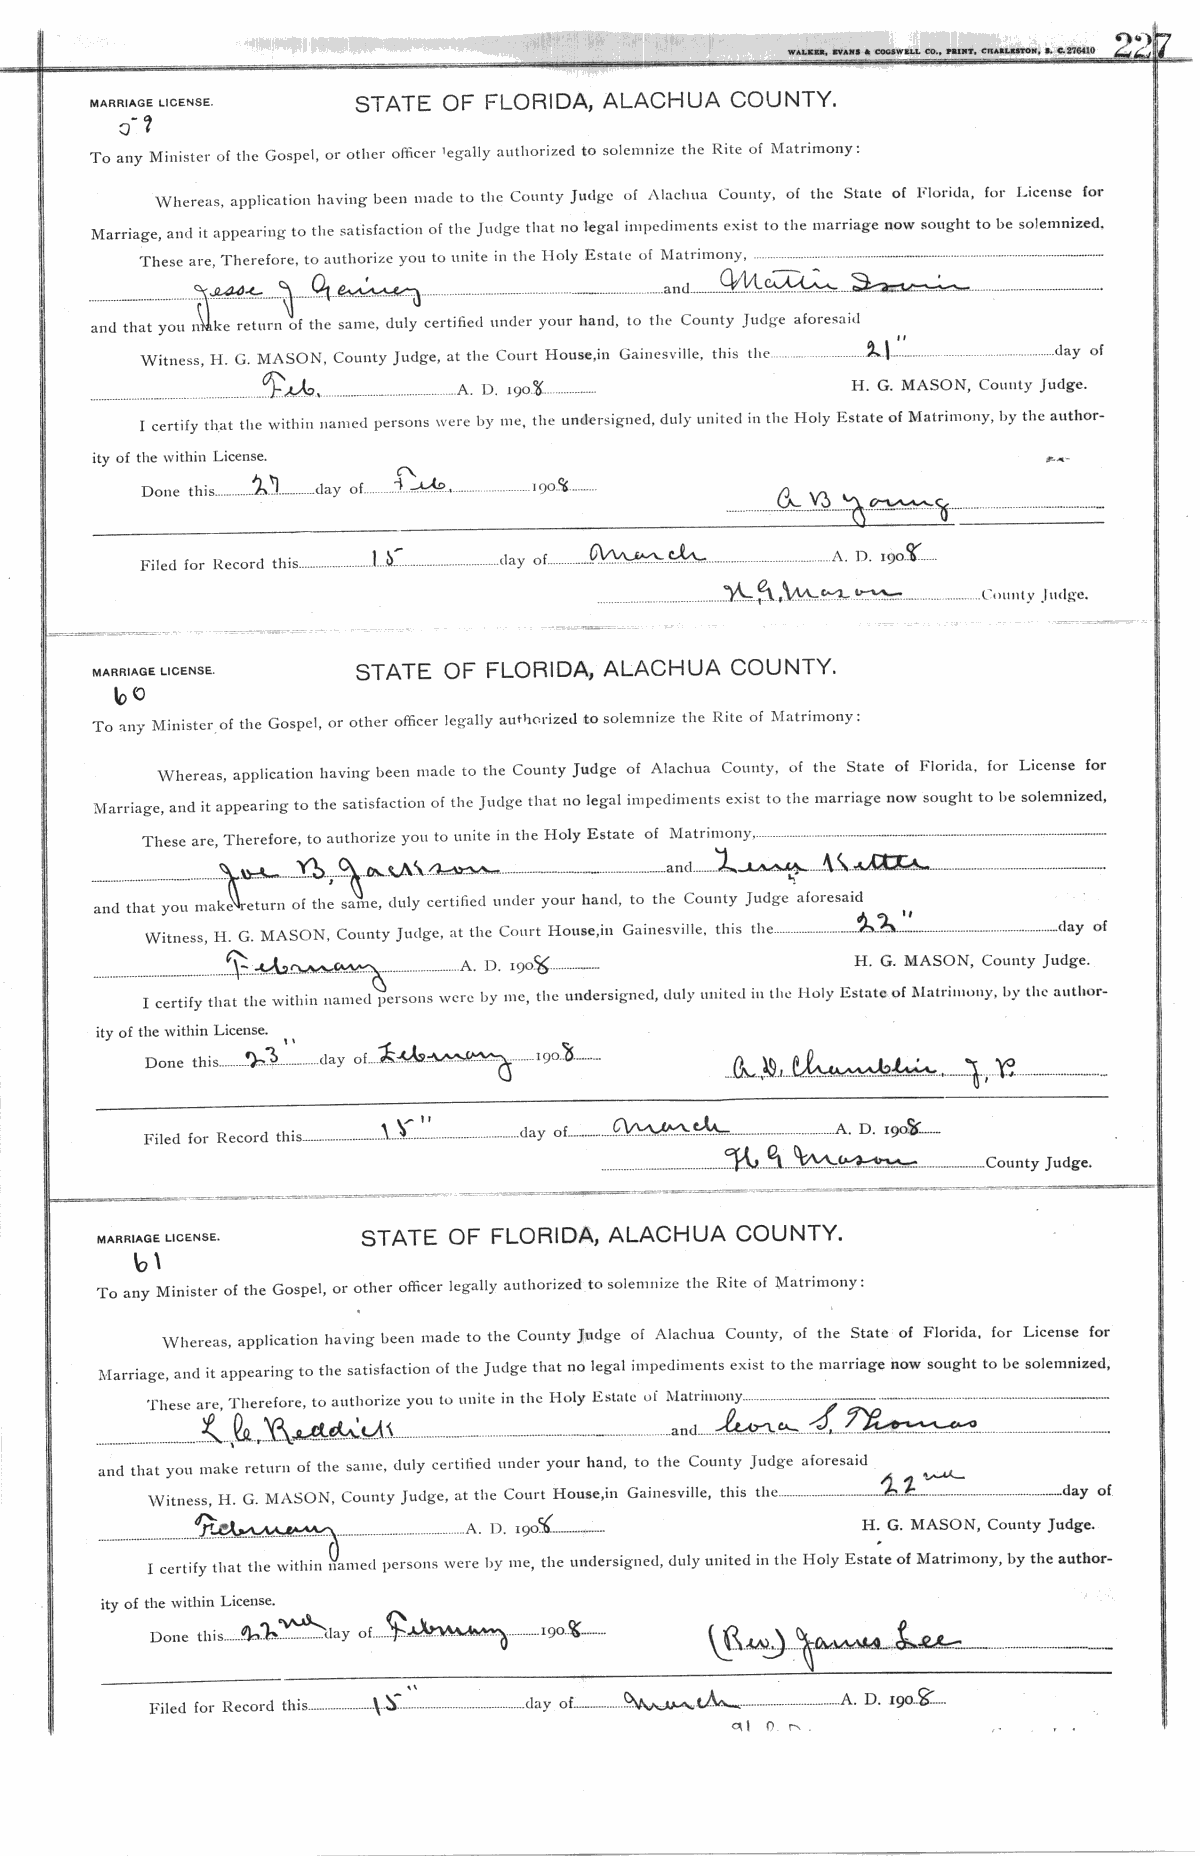 WALKER, EVANS & COGSWELL CO., PRINT, CHARLESTON, S. C. 276410 227
MARRIAGE LICENSE. STATE OF FLORIDA, ALACHUA COUNTY.
59
To any Minister of the Gospel, or other officer legally authorized to solemnize the Rite of Matrimony:
Whereas, application having been made to the County Judge of Alachua County, of the State of Florida, for License for
Marriage, and it appearing to the satisfaction of the Judge that no legal impediments exist to the marriage now sought to be solemnized,
These are, Therefore, to authorize you to unite in the Holy Estate of Matrimony,
Jesse J Gainey and Mattie
and that you make return of the same, duly certified under your hand, to the County Judge aforesaid
Witness, H. G. MASON, County Judge, at the Court House, in Gainesville, this the 21" day of
Feb. A. D. 1908 H. G. MASON, County Judge.
I certify that the within named persons were by me, the undersigned, duly united in the Holy Estate of Matrimony, by the author-
ity of the within License.
Done this 27 day of Feb. 1908
A B Young
Filed for Record this 15 day of March A. D. 1908
H. G. Mason County Judge.
MARRIAGE LICENSE. STATE OF FLORIDA, ALACHUA COUNTY.
60
To any Minister of the Gospel, or other officer legally authorized to solemnize the Rite of Matrimony:
Whereas, application having been made to the County Judge of Alachua County, of the State of Florida, for License for
Marriage, and it appearing to the satisfaction of the Judge that no legal impediments exist to the marriage now sought to be solemnized,
These are, Therefore, to authorize you to unite in the Holy Estate of Matrimony,
Joe B. Jackson and Lena
and that you make return of the same, duly certified under your hand, to the County Judge aforesaid
Witness, H. G. MASON, County Judge, at the Court House, in Gainesville, this the 22" day of
February A. D. 1908 H. G. MASON, County Judge.
I certify that the within named persons were by me, the undersigned, duly united in the Holy Estate of Matrimony, by the author-
ity of the within License.
Done this 23" day of February 1908
A. D. Chamblin, J. P.
Filed for Record this 15" day of March A. D. 1908
H G Mason County Judge.
MARRIAGE LICENSE. STATE OF FLORIDA, ALACHUA COUNTY.
61
To any Minister of the Gospel, or other officer legally authorized to solemnize the Rite of Matrimony:
Whereas, application having been made to the County Judge of Alachua County, of the State of Florida, for License for
Marriage, and it appearing to the satisfaction of the Judge that no legal impediments exist to the marriage now sought to be solemnized,
These are, Therefore, to authorize you to unite in the Holy Estate of Matrimony
L. C. Reddick and Cora S. Thomas
and that you make return of the same, duly certified under your hand, to the County Judge aforesaid
Witness, H. G. MASON, County Judge, at the Court House, in Gainesville, this the 22nd day of
February A. D. 1908 H. G. MASON, County Judge.
I certify that the within named persons were by me, the undersigned, duly united in the Holy Estate of Matrimony, by the author-
ity of the within License.
Done this 22nd day of February 1908
(Rev.) James Lee
Filed for Record this 15" day of March A. D. 1908